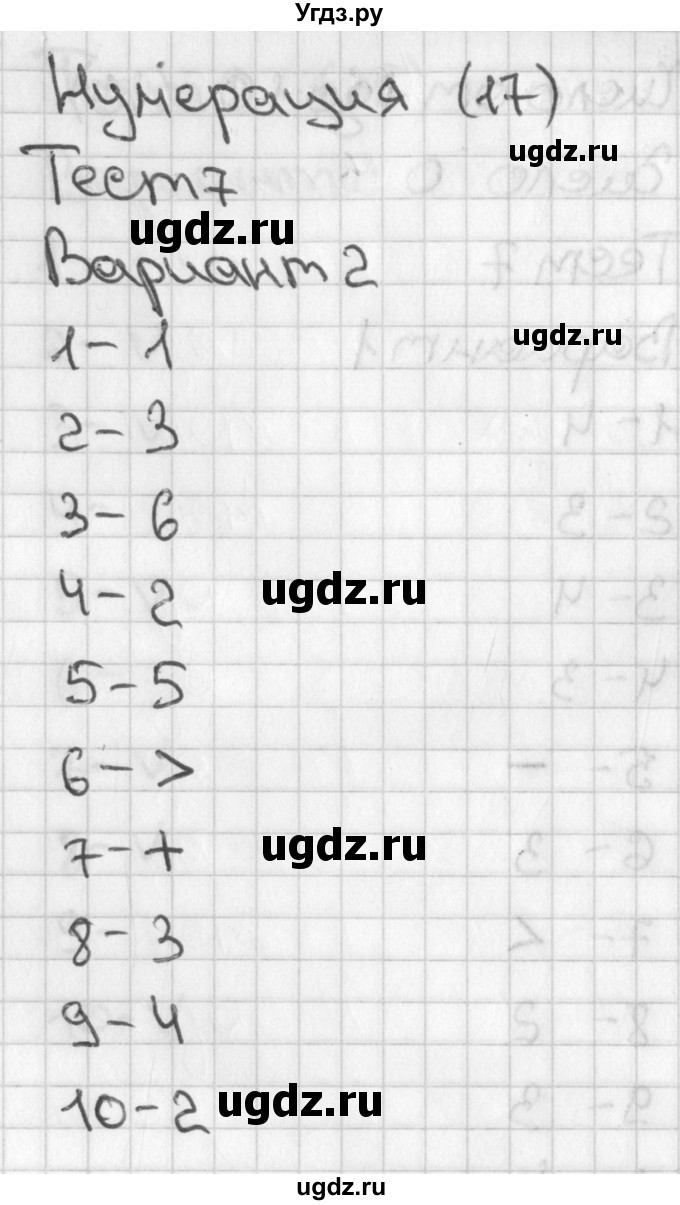 Угдз.ру
Нумерация (17)
ugdz.ru
Тест 7
ugdz.ru
Вариант 2
ugdz.ru
1 - 1
2 - 3
3 - 6
4 - 2
ugdz.ru
5 - 5
6 - >
7 - +
ugdz.ru
8 - 3
9 - 4
10 - 2
ugdz.ru
ugdz.ru